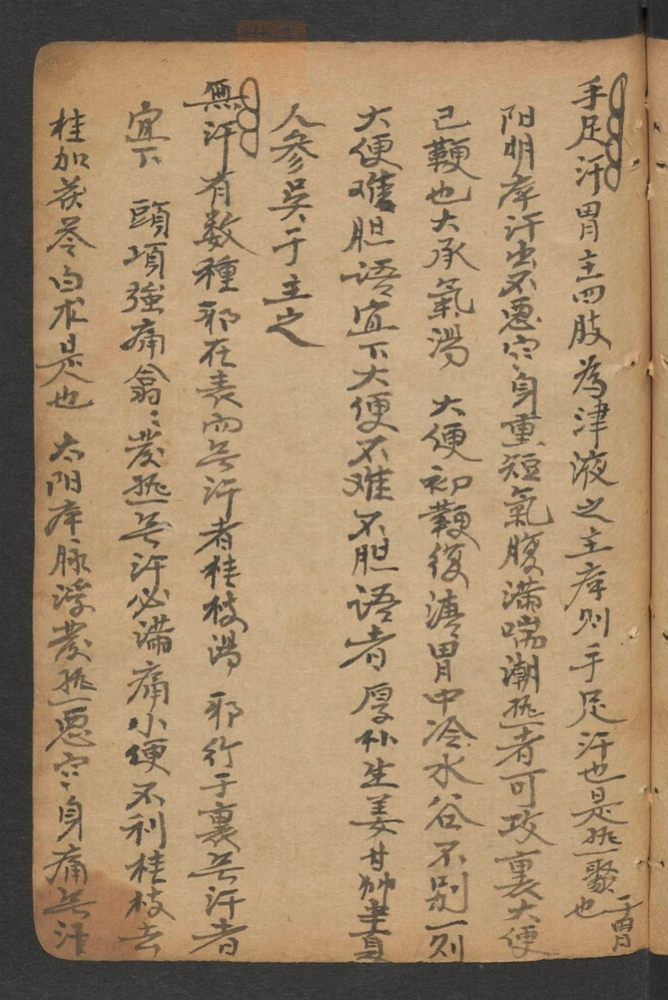 手足汗胃主四肢為津液之主病则手足汗也是热聚于胃也
阳明病汗出不悪寒身重短氣腹满喘潮热者可攻裏大便
已鞕也大承氣湯 大便初鞕後溏胃中冷水谷不别一则
大便难胆语宜下大便不难不胆语者厚朴生姜甘草半夏
人参吴于主之
無汗有数種邪在表而无汗者桂枝湯 邪行于裏无汗者
宜下 頭項強痛翕〻發热无汗必满痛小便不利桂枝去
桂加茯苓白术是也 太阳病脉浮發热悪寒身痛无汗